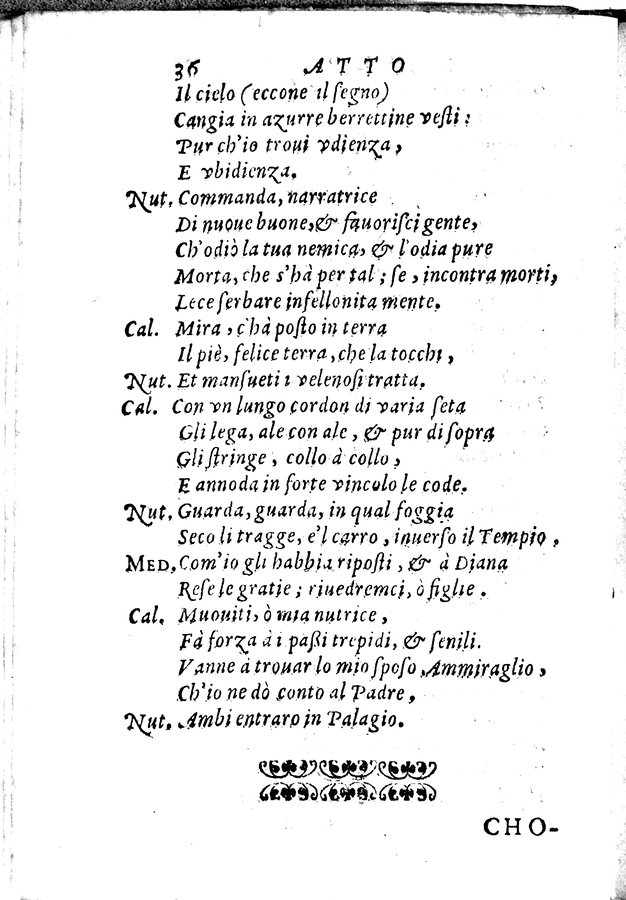 36 ATTO
Il cielo (eccone il ſegno)
Cangia in azurre berrettine veſti:
Pur ch'io troui vdienza,
E vbidienza.
Nut. Commanda, narratrice
Di nuoue buone, & fauoriſci gente,
Ch'odiò la tua nemica, & l'odia pure
Morta, che s'hà per tal; ſe, incontra morti,
Lece ſerbare infellonita mente.
Cal. Mira, c'hà poſto in terra
Il piè, felice terra, che la tocchi,
Nut. Et manſueti i velenoſi tratta.
Cal. Con vn lungo cordon di varia ſeta
Gli lega, ale con ale, & pur di ſopra
Gli ſtringe, collo à collo,
E annoda in forte vincolo le code.
Nut. Guarda, guarda, in qual foggia
Seco li tragge, e'l carro, inuerſo il Tempio,
MED. Com'io gli habbia ripoſti, & à Diana
Reſe le gratie; riuedremci, ò figlie.
Cal. Muouiti, ò mia nutrice,
Fà forza à i paßi trepidi, & ſenili.
Vanne à trouar lo mio ſpoſo Ammiraglio,
Ch'io ne dò conto al Padre,
Nut. Ambi entraro in Palagio.
CHO-